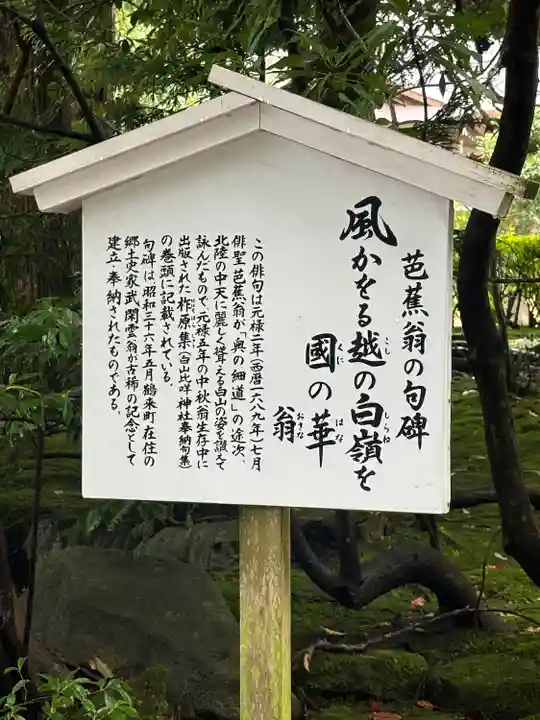 芭蕉翁の句碑
風かをる越の白嶺を
國の華
翁
この俳句は元禄二年(西暦一六八九年)七月
俳聖芭蕉翁が「奥の細道」の途次、
北陸の中天に麗しく聳える白山の姿を讃えて
詠んだもので、元禄五年の中秋(翁生存中に
出版された柞原集(白山比咩神社奉納句集)
の巻頭に記載されている。
句碑は昭和三十六年五月鶴来町在住の
郷土史家武閑雲翁が古稀の記念として
建立、奉納されたものである。